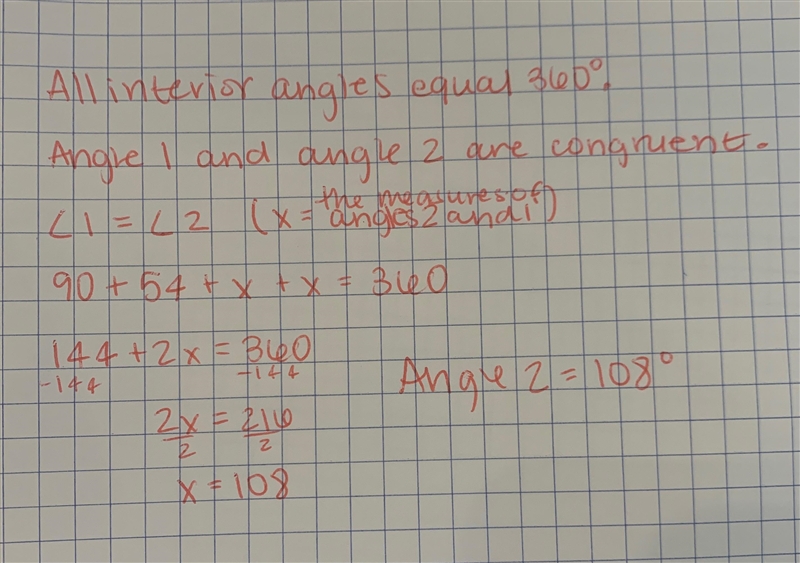 All interior angles equal 360°.
Angle 1 and angle 2 are congruent.
∠1 = ∠2 (x = the measures of angles 2 and 1)
90 + 54 + x + x = 360
144 + 2x = 360
-144 -144
Angle 2 = 108°
2x = 216
2 2
x = 108